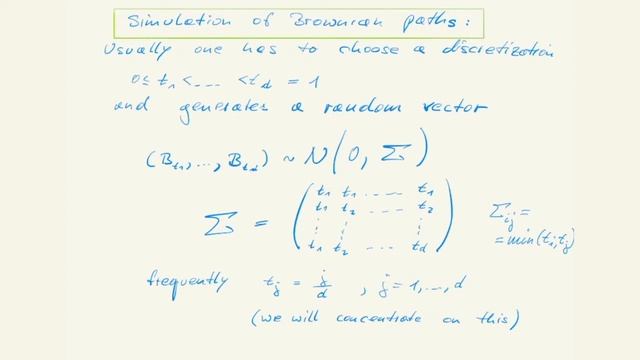 Simulation of Brownian paths:
Usually one has to choose a discretization
0 ≤ t₁ < ... < t_d = 1
and generates a random vector
(B_{t₁}, ..., B_{t_d}) ~ N(0, Σ)
Σ = ( t₁ t₁ ... t₁
t₁ t₂ ... t₂
⋮ ⋮ ⋮
t₁ t₂ ... t_d )
Σ_{ij} =
= min(t_i, t_j)
frequently t_j = j/d , j = 1, ..., d
(we will concentrate on this)